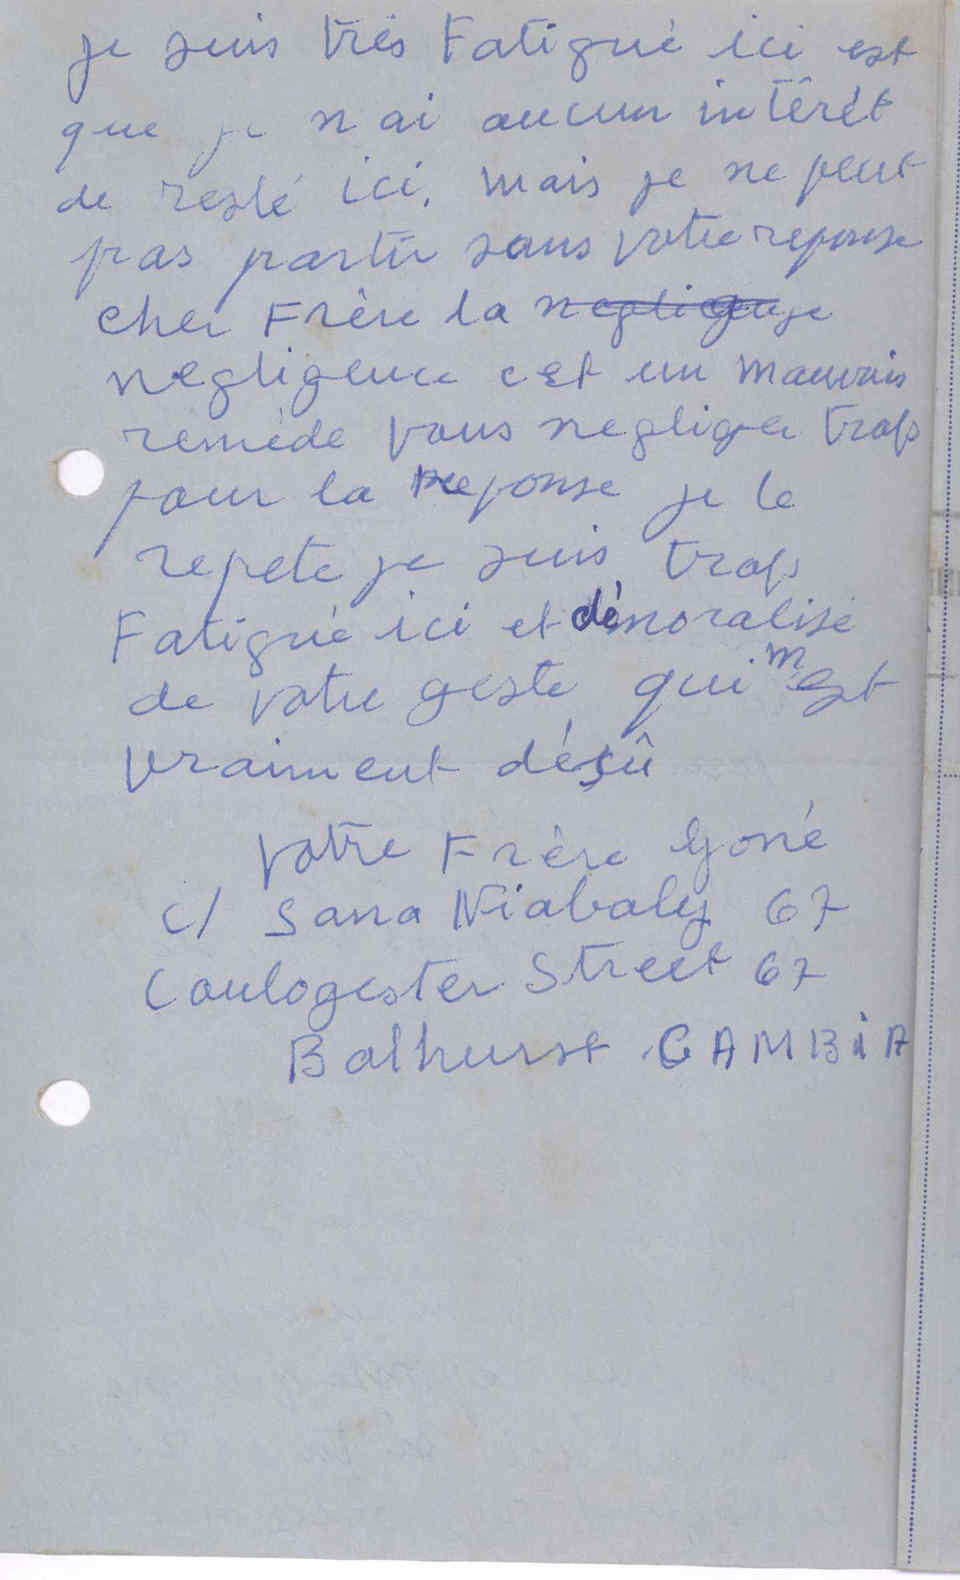 je suis très Fatigué ici est
que je n ai aucun intêrêt
de resté ici, mais je ne peut
pas partir sans votre reponse
cher Frère la negligenje
negligence c est un mauvais
remède vous negliger trops
pour la reponse je le
repete je suis trops
Fatigué ici et démoralisé
de votre geste qui m'est
vraiment déçû
votre Frère
c/ Sana Niabaly 67
Coulogester Street 67
Bathurst GAMBiA